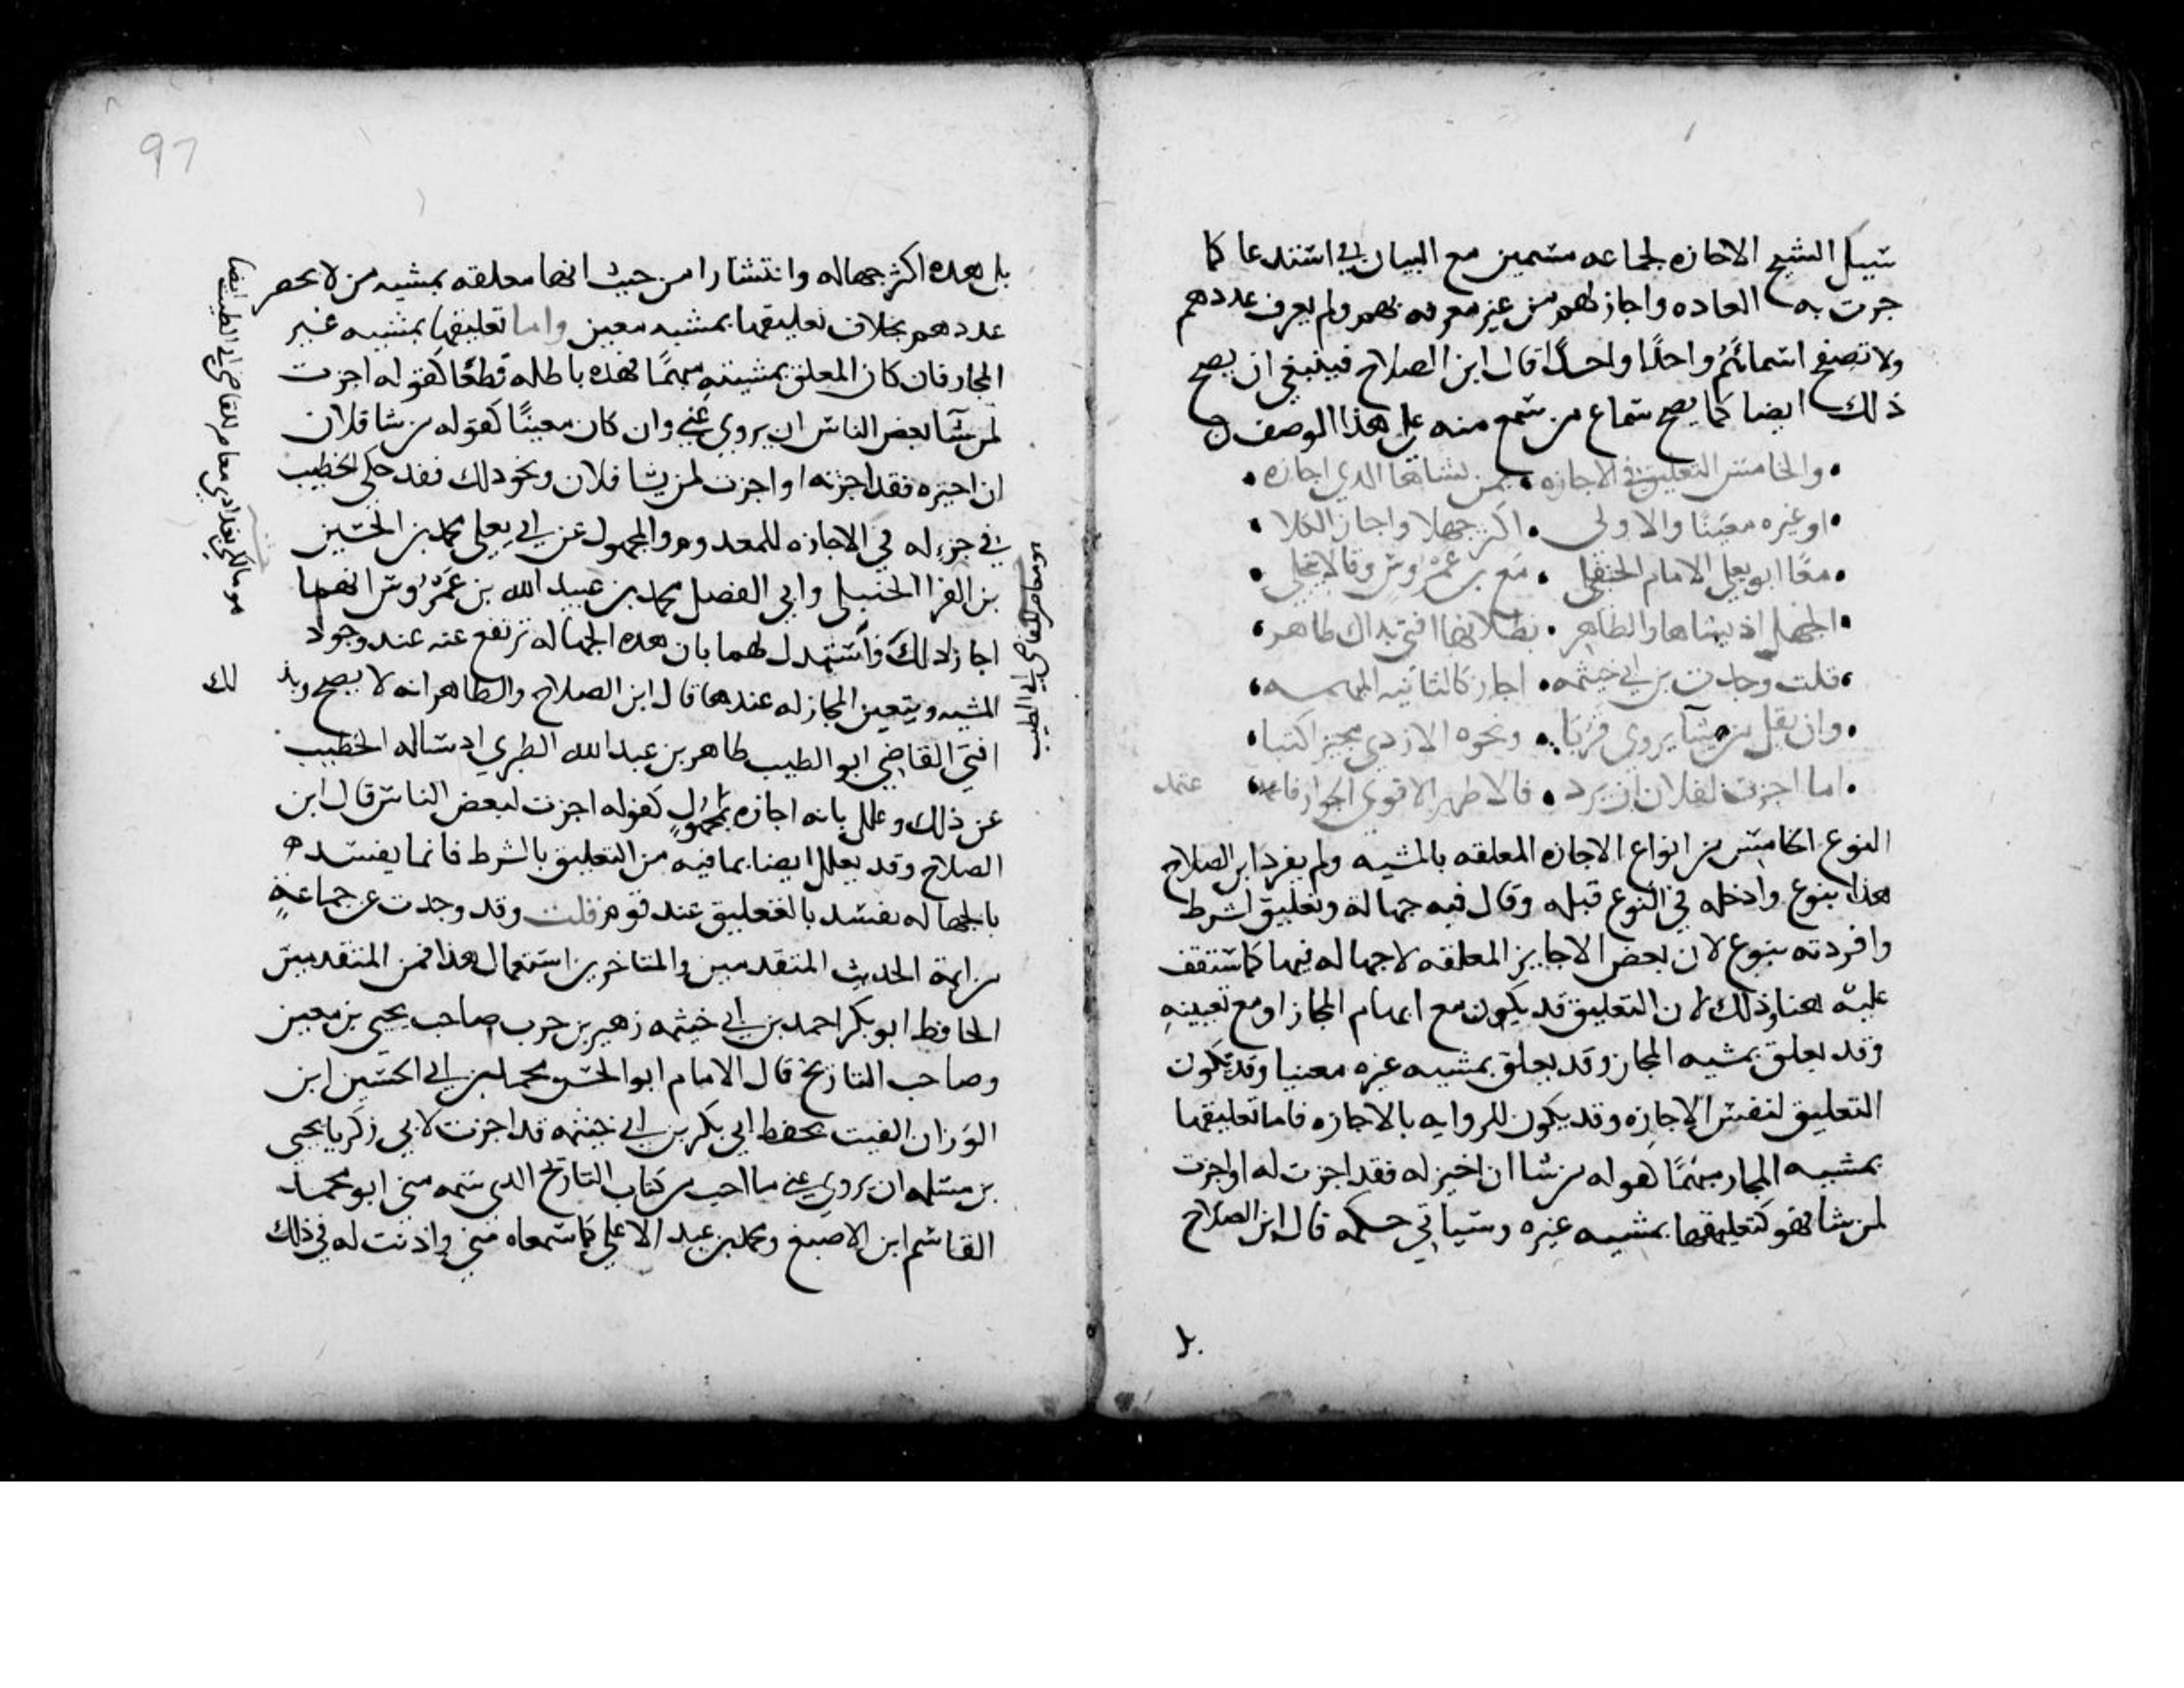 سيل الشيخ الاجازه لجماعه مسمين مع البيان في استدعا كما
جرت به العاده واجاز لهم من غير معرفه بهم ولم يعرف عددهم
ولا تصفح اسمائهم واحدًا واحدًا قال ابن الصلاح فينبغي ان يصح
ذلك ايضا كما يصح سماع من سمع منه على هذا الوصف
والخامس التعليق في الاجازه • بمن يشاها الذي اجازه •
• او غيره معينًا والاولى • اكثر جهلا واجاز الكلا •
• معًا ابو يعلى الامام الحنبلي • مع بن عمروس وقالا ينجلي •
• الجهل اذ يشاها والظاهر • بطلانها افتى بذاك طاهر •
• قلت وجدت بن ابي خيثمه • اجاز كالثانيه المبهمه •
• وان يقل من شا يروي قربا • ونحوه الازدي مجيزا كتبا •
• اما اجزت لفلان ان يرد • فالاظهر الاقوى الجواز فاعتمد
عتمد
النوع الخامس من انواع الاجازه المعلقه بالمشيه ولم يفرد ابن الصلاح
هذا بنوع وادخله في النوع قبله وقال فيه جهالة وتعليق لشرط
وافردته بنوع لان بعض الاجايز المعلقه لا جهاله فيها كما ستقف
عليه هنا وذلك لان التعليق قد يكون مع ابهام المجاز او مع تعيينه
وقد يعلق بمشيه المجاز وقد يعلق بمشيه غيره معينا وقد تكون
التعليق لنفس الاجازه وقد يكون للروايه بالاجازه فاما تعليقها
بمشيه المجاز مبهمًا كقوله من شا ان اجيز له فقد اجزت له او اجزت
لمن شا فهو كتعليقها بمشيه غيره وسياتي حكمه قال ابن الصلاح
بل
بل هذه اكثر جهاله وانتشارا من حيث انها معلقه بمشيه من لا يحصر
عددهم بخلاف تعليقها بمشيه معين واما تعليقها بمشيه غير
المجاز فان كان المعلق بمشيته مبهمًا فهذه باطله قطعًا كقوله اجزت
لمن شا بعض الناس ان يروي عني وان كان معينًا كقوله من شا فلان
ان اجيزه فقد اجزته او اجزت لمن يشا فلان ونحو ذلك فقد حكى الخطيب
في جزء له في الاجازه للمعدوم والمجهول عن ابي يعلى محمد بن الحسين
بن الفرا الحنبلي وابي الفضل محمد بن عبيد الله بن عمروس انهما
اجازا ذلك واستدل لهما بان هذه الجهاله ترتفع عنه عند وجود
المشيه ويتعين المجاز له عندها قال ابن الصلاح والظاهر انه لا يصح وبذ
لك
افتى القاضي ابو الطيب طاهر بن عبد الله الطبري اذ ساله الخطيب
عن ذلك وعلل بانه اجازه لمجهول كقوله اجزت لبعض الناس قال ابن
الصلاح وقد يعلل ايضا بما فيه من التعليق بالشرط فانما يفسد
بالجهاله يفسد بالتعليق عند قوم قلت وقد وجدت عن جماعة
من ايمة الحديث المتقدمين والمتاخرين استعمال هذا فمن المتقدمين
الحافظ ابو بكر احمد بن ابي خيثمه زهير بن حرب صاحب يحيى بن معين
وصاحب التاريخ قال الامام ابو الحسن محمد بن ابي الحسين ابن
الوزان الفيت بخط ابي بكر بن ابي خيثمه قد اجزت لابي زكريا يحيى
بن مسلمه ان يروي عني ما احب من كتاب التاريخ الذي سمعه مني ابو محمد
القاسم ابن الاصبغ ومحمد بن عبد الاعلى كما سمعاه مني واذنت له في ذلك
هو معاصر للقاضي ابي الطيب
هو مالكي بغدادي معاصر للقاضي ابي الطيب ايضا
97